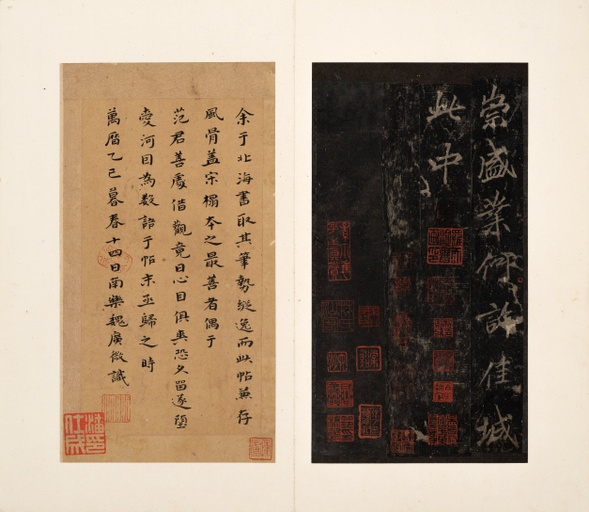 崇盛業何許佳城
此中
余于北海書取其筆勢縱逸而此帖兼存
風骨蓋宋搨本之最善者偶于
范君善處借觀竟日心目俱爽恐久留遂墮
愛河因為數語于帖末亟歸之時
萬曆乙巳暮春十四日南樂魏廣微識